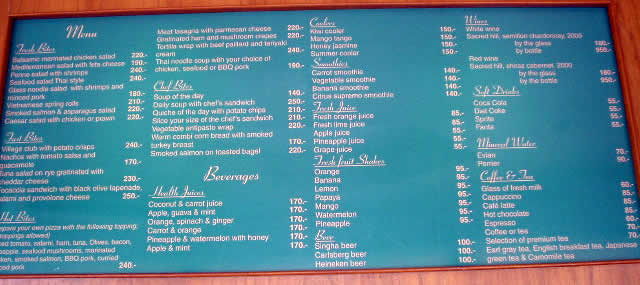 Menu
Fresh Bites
Balsamic marinated chicken salad 220.-
Mediterranean salad with feta cheese 190.-
Penne salad with shrimps 240.-
Seafood salad Thai style 240.-
Glass noodle salad with shrimps and
minced pork 180.-
Vietnamese spring rolls 210.-
Smoked salmon & asparagus salad 220.-
Caesar salad with chicken or prawn 220.-
Fast Bites
Village club with potato crisps 240.-
Nachos with tomato salsa and
guacamole 170.-
Tuna salad on rye gratinated with
cheddar cheese 230.-
Focaccia sandwich with black olive tapenade,
salami and provolone cheese 250.-
Hot Bites
your own pizza with the following topping:
toppings allowed)
tomato, salami, ham, tuna, Olives, bacon,
seafood mushrooms, marinated
smoked salmon, BBQ pork, curried
pork 240.-
Meat lasagna with parmesan cheese 220.-
Gratinated ham and mushroom crepes 220.-
Tortilla wrap with beef paillard and teriyaki
cream 240.-
Thai noodle soup with your choice of
chicken, seafood or BBQ pork 190.-
Chef Bites
Soup of the day 140.-
Daily soup with chef's sandwich 250.-
Quiche of the day with potato chips 210.-
Slice your size of the chef's sandwich 200.-
Vegetable antipasto wrap 220.-
Warm combi corn bread with smoked
turkey breast 170.-
Smoked salmon on toasted bagel 260.-
Beverages
Health Juices
Coconut & carrot juice 170.-
Apple, guava & mint 170.-
Orange, spinach & ginger 170.-
Carrot & orange 170.-
Pineapple & watermelon with honey 170.-
Apple & mint 170.-
Coolers
Kiwi cooler 150.-
Mango tango 150.-
Honey jasmine 150.-
Summer cooler 150.-
Smoothies
Carrot smoothie 140.-
Vegetable smoothie 140.-
Banana smoothie 140.-
Citrus supremo smoothie 140.-
Fresh Juice
Fresh orange juice 85.-
Fresh lime juice 55.-
Apple juice 55.-
Pineapple juice 55.-
Grape juice 55.-
Fresh fruit Shakes
Orange 90.-
Banana 90.-
Lemon 90.-
Papaya 90.-
Mango 90.-
Watermelon 90.-
Pineapple 90.-
Beer
Singha beer 100.-
Carlsberg beer 100.-
Heineken beer 100.-
Wines
White wine
Sacred hill, semillon chardonnay, 2005
by the glass 180.-
by bottle 950.-
Red wine
Sacred hill, shiraz cabernet, 2000
by the glass 180.-
by the bottle 950.-
Soft Drinks
Coca Cola 55.-
Diet Coke 55.-
Sprite 55.-
Fanta 55.-
Mineral Water
Evian 70.-
Perrier 90.-
Coffee & Tea
Glass of fresh milk 60.-
Cappuccino 85.-
Café latte 85.-
Hot chocolate 85.-
Espresso 60.-
Coffee or tea 70.-
Selection of premium tea
Earl gray tea, English breakfast tea, Japanese
green tea & Camomile tea